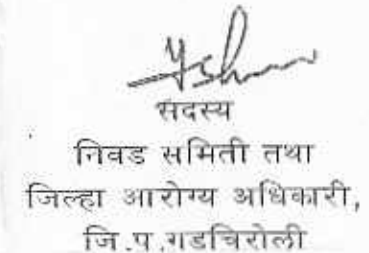 सदस्य
निवड समिती तथा
जिल्हा आरोग्य अधिकारी,
जि.प.गडचिरोली